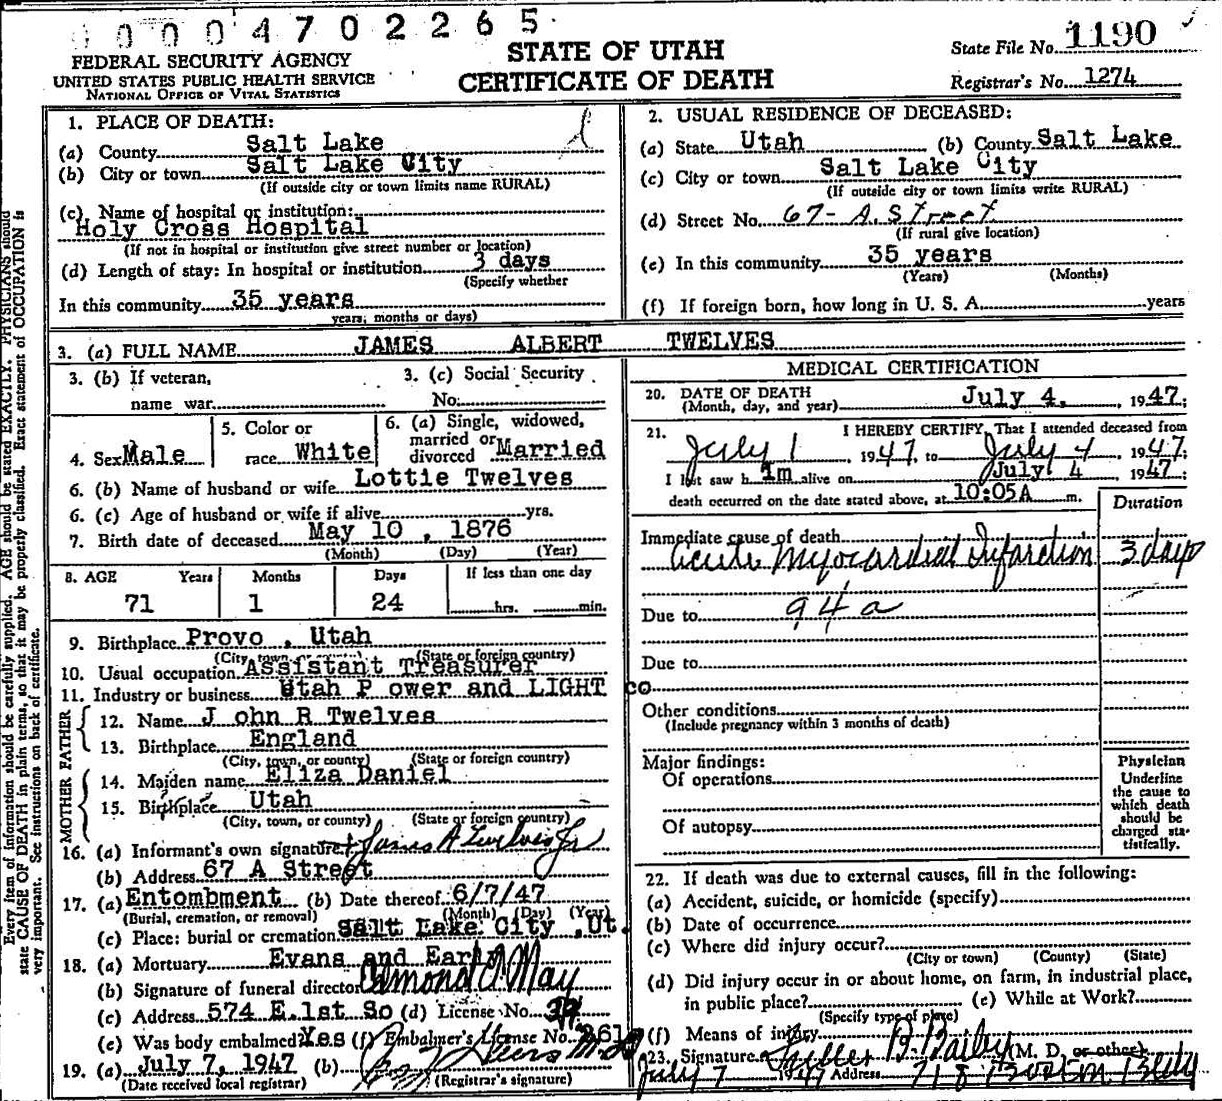 00004702265
FEDERAL SECURITY AGENCY
UNITED STATES PUBLIC HEALTH SERVICE
NATIONAL OFFICE OF VITAL STATISTICS
STATE OF UTAH
CERTIFICATE OF DEATH
State File No. 1190
Registrar's No. 1274
1. PLACE OF DEATH:
(a) County Salt Lake
(b) City or town Salt Lake City
(If outside city or town limits name RURAL)
(c) Name of hospital or institution:
Holy Cross Hospital
(If not in hospital or institution give street number or location)
(d) Length of stay: In hospital or institution 3 days
(Specify whether
In this community 35 years
years, months or days)
2. USUAL RESIDENCE OF DECEASED:
(a) State Utah (b) County Salt Lake
(c) City or town Salt Lake City
(If outside city or town limits write RURAL)
(d) Street No. 67- A. Street
(If rural give location)
(e) In this community 35 years
(Years) (Months)
(f) If foreign born, how long in U. S. A. years
3. (a) FULL NAME JAMES ALBERT TWELVES
3. (b) If veteran,
name war
3. (c) Social Security
No.
4. Sex Male
5. Color or
race White
6. (a) Single, widowed,
married or
divorced Married
6. (b) Name of husband or wife Lottie Twelves
6. (c) Age of husband or wife if alive yrs.
7. Birth date of deceased May 10 , 1876
(Month) (Day) (Year)
8. AGE Years Months Days If less than one day
71 1 24 hrs. min.
9. Birthplace Provo , Utah
(City, town, or county) (State or foreign country)
10. Usual occupation Assistant Treasurer
11. Industry or business Utah P ower and LIGHT co
FATHER
12. Name J ohn R Twelves
13. Birthplace England
(City, town, or county) (State or foreign country)
MOTHER
14. Maiden name Eliza Daniel
15. Birthplace Utah
(City, town, or county) (State or foreign country)
16. (a) Informant's own signature James A Twelves Jr
(b) Address 67 A Street
17. (a) Entombment (b) Date thereof 6/7/47
(Burial, cremation, or removal) (Month) (Day) (Year)
(c) Place: burial or cremation Salt Lake City ,Ut.
18. (a) Mortuary Evans and Early
(b) Signature of funeral director May
(c) Address 574 E.1st So (d) License No.
(e) Was body embalmed? Yes (f) Embalmer's License No.
19. (a) July 7, 1947 (b)
(Date received local registrar) (Registrar's signature)
MEDICAL CERTIFICATION
20. DATE OF DEATH
(Month, day, and year) July 4, , 1947;
21. I HEREBY CERTIFY, That I attended deceased from
July 1 , 1947, to July 4 , 1947;
I last saw h im alive on July 4 , 1947;
death occurred on the date stated above, at 10:05A m.
Duration
Immediate cause of death
Acute Myocardial Infarction 3 days
Due to 94a
Due to
Other conditions
(Include pregnancy within 3 months of death)
Major findings:
Of operations
Of autopsy
Physician
Underline
the cause to
which death
should be
charged sta-
tistically.
22. If death was due to external causes, fill in the following:
(a) Accident, suicide, or homicide (specify)
(b) Date of occurrence
(c) Where did injury occur?
(City or town) (County) (State)
(d) Did injury occur in or about home, on farm, in industrial place,
in public place? (e) While at Work?
(Specify type of place)
(f) Means of injury
23. Signature B. Bailey (M. D. or other)
July 7 1947 Address 718 Boston Bldg
Every item of information should be carefully supplied. AGE should be stated EXACTLY. PHYSICIANS should
state CAUSE OF DEATH in plain terms, so that it may be properly classified. Exact statement of OCCUPATION is
very important. See instructions on back of certificate.